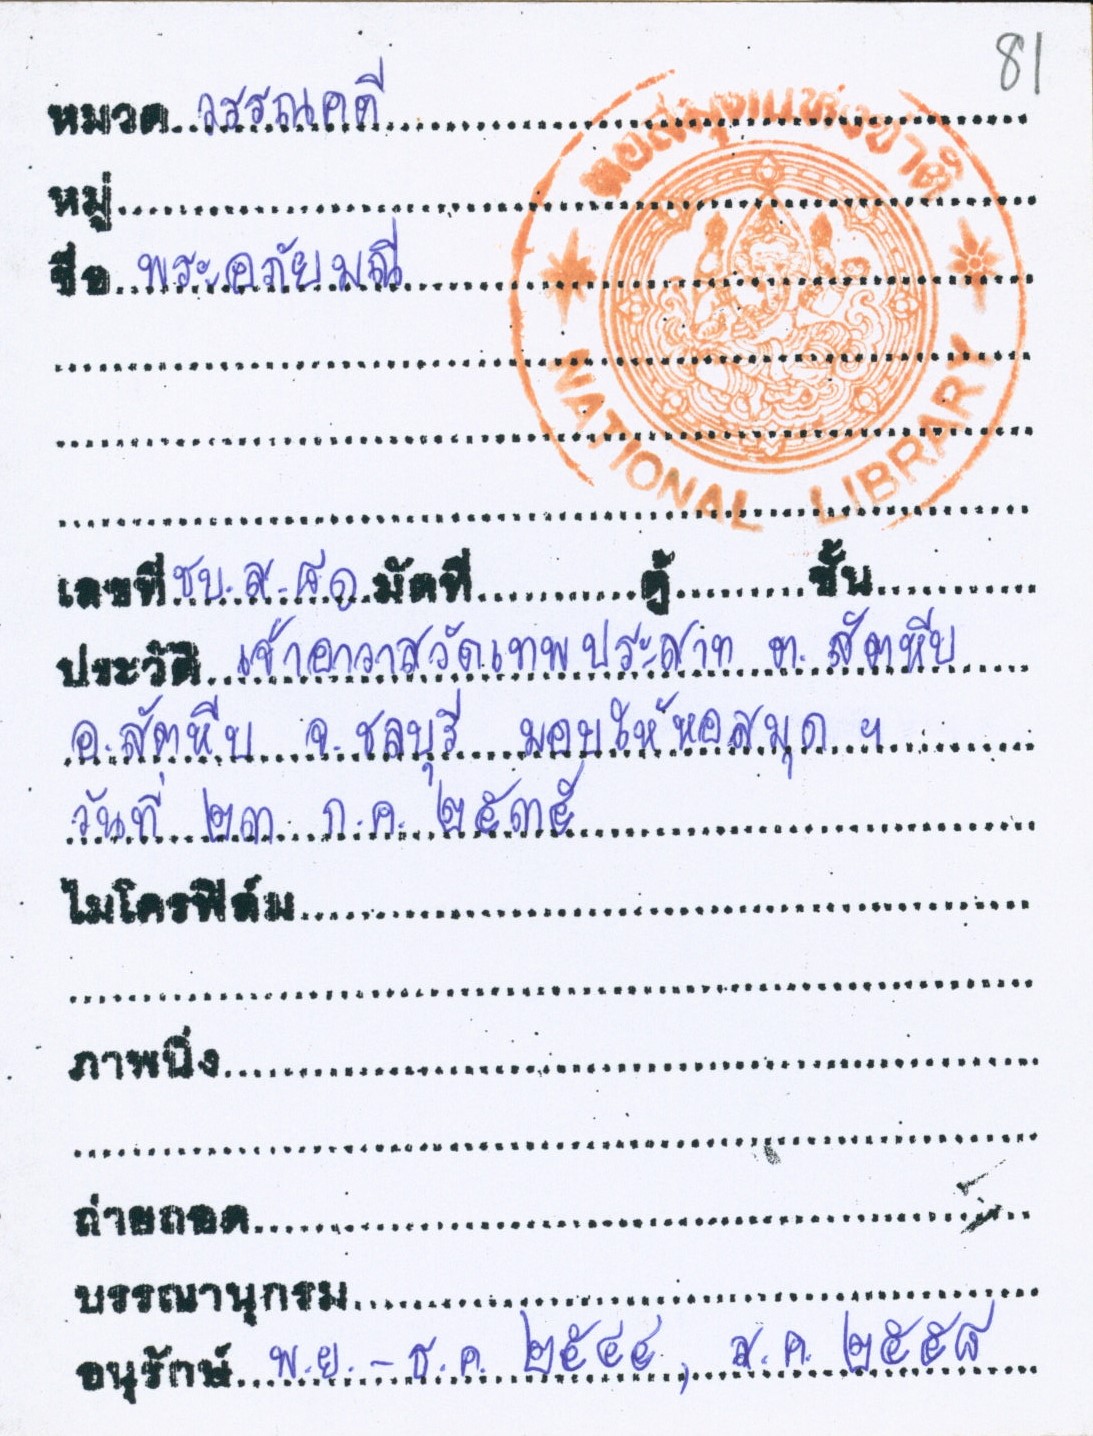 81
หมวด วรรณคดี
หอสมุดแห่งชาติ
หมู่
ชื่อ พระอภัยมณี
NATIONAL LIBRARY
เลขที่ ชบ.ส.๘๑ มัดที่ ตู้ ชั้น
ประวัติ เจ้าอาวาสวัดเทพประสาท ต. สัตหีบ
อ.สัตหีบ จ.ชลบุรี มอบให้หอสมุด ฯ
วันที่ ๒๓ ก.ค. ๒๕๓๕
ไมโครฟิล์ม
ภาพนิ่ง
ถ่ายถอด
บรรณานุกรม
อนุรักษ์ พ.ย. - ธ.ค. ๒๕๔๔ , ส.ค. ๒๕๕๘